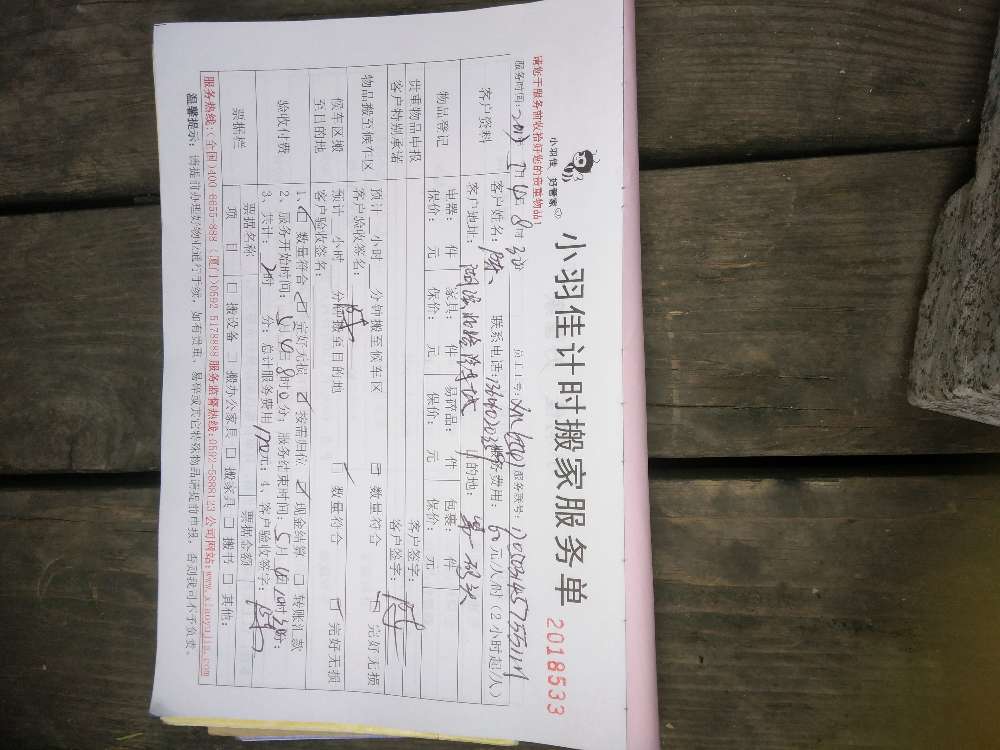 请您于服务前收拾好您的贵重物品!
小羽佳 好管家
小羽佳计时搬家服务单
2018533
服务时间: 2017年5月4日8时30分
员工工号:
服务账号:
客户资料
客户姓名: 陈
联系电话:
服务费用: 60元/人/时(2小时起/人)
客户地址:
目的地: 第一码头
物品登记
电器: 件 家具: 件 易碎品: 件 包裹: 件
保价: 元 保价: 元 保价: 元 保价: 元
贵重物品申报
客户签字:
客户特别承诺
客户签字: 陈
物品搬至候车区
预计 小时 分钟搬至候车区
客户验收签名: 陈
□ 数量符合 □ 完好无损
候车区搬至目的地
预计 小时 分钟搬至目的地
客户验收签名:
□ 数量符合 □ 完好无损
验收付费
1、□ 数量符合 □ 完好无损 □ 按需归位 □ 现金结算 □ 转账汇款
2、服务开始时间: 5月4日8时0分; 服务结束时间: 5月4日10时30分;
3、共计: 分; 总计服务费用 元; 4、客户验收签字: 陈
票据栏
票据名称
票据金额
项目 □ 搬设备 □ 搬办公家具 □ 搬家具 □ 搬书 □ 其他:
服务热线:(全国)400-8655-888 (厦门)0592-5178888 服务监督热线:0592-5888123 公司网站:www.xiaoyujia.com
温馨提示: 请提前办理好物业通行手续, 如有贵重、易碎或其它特殊物品请提前申报, 否则我司不予负责。